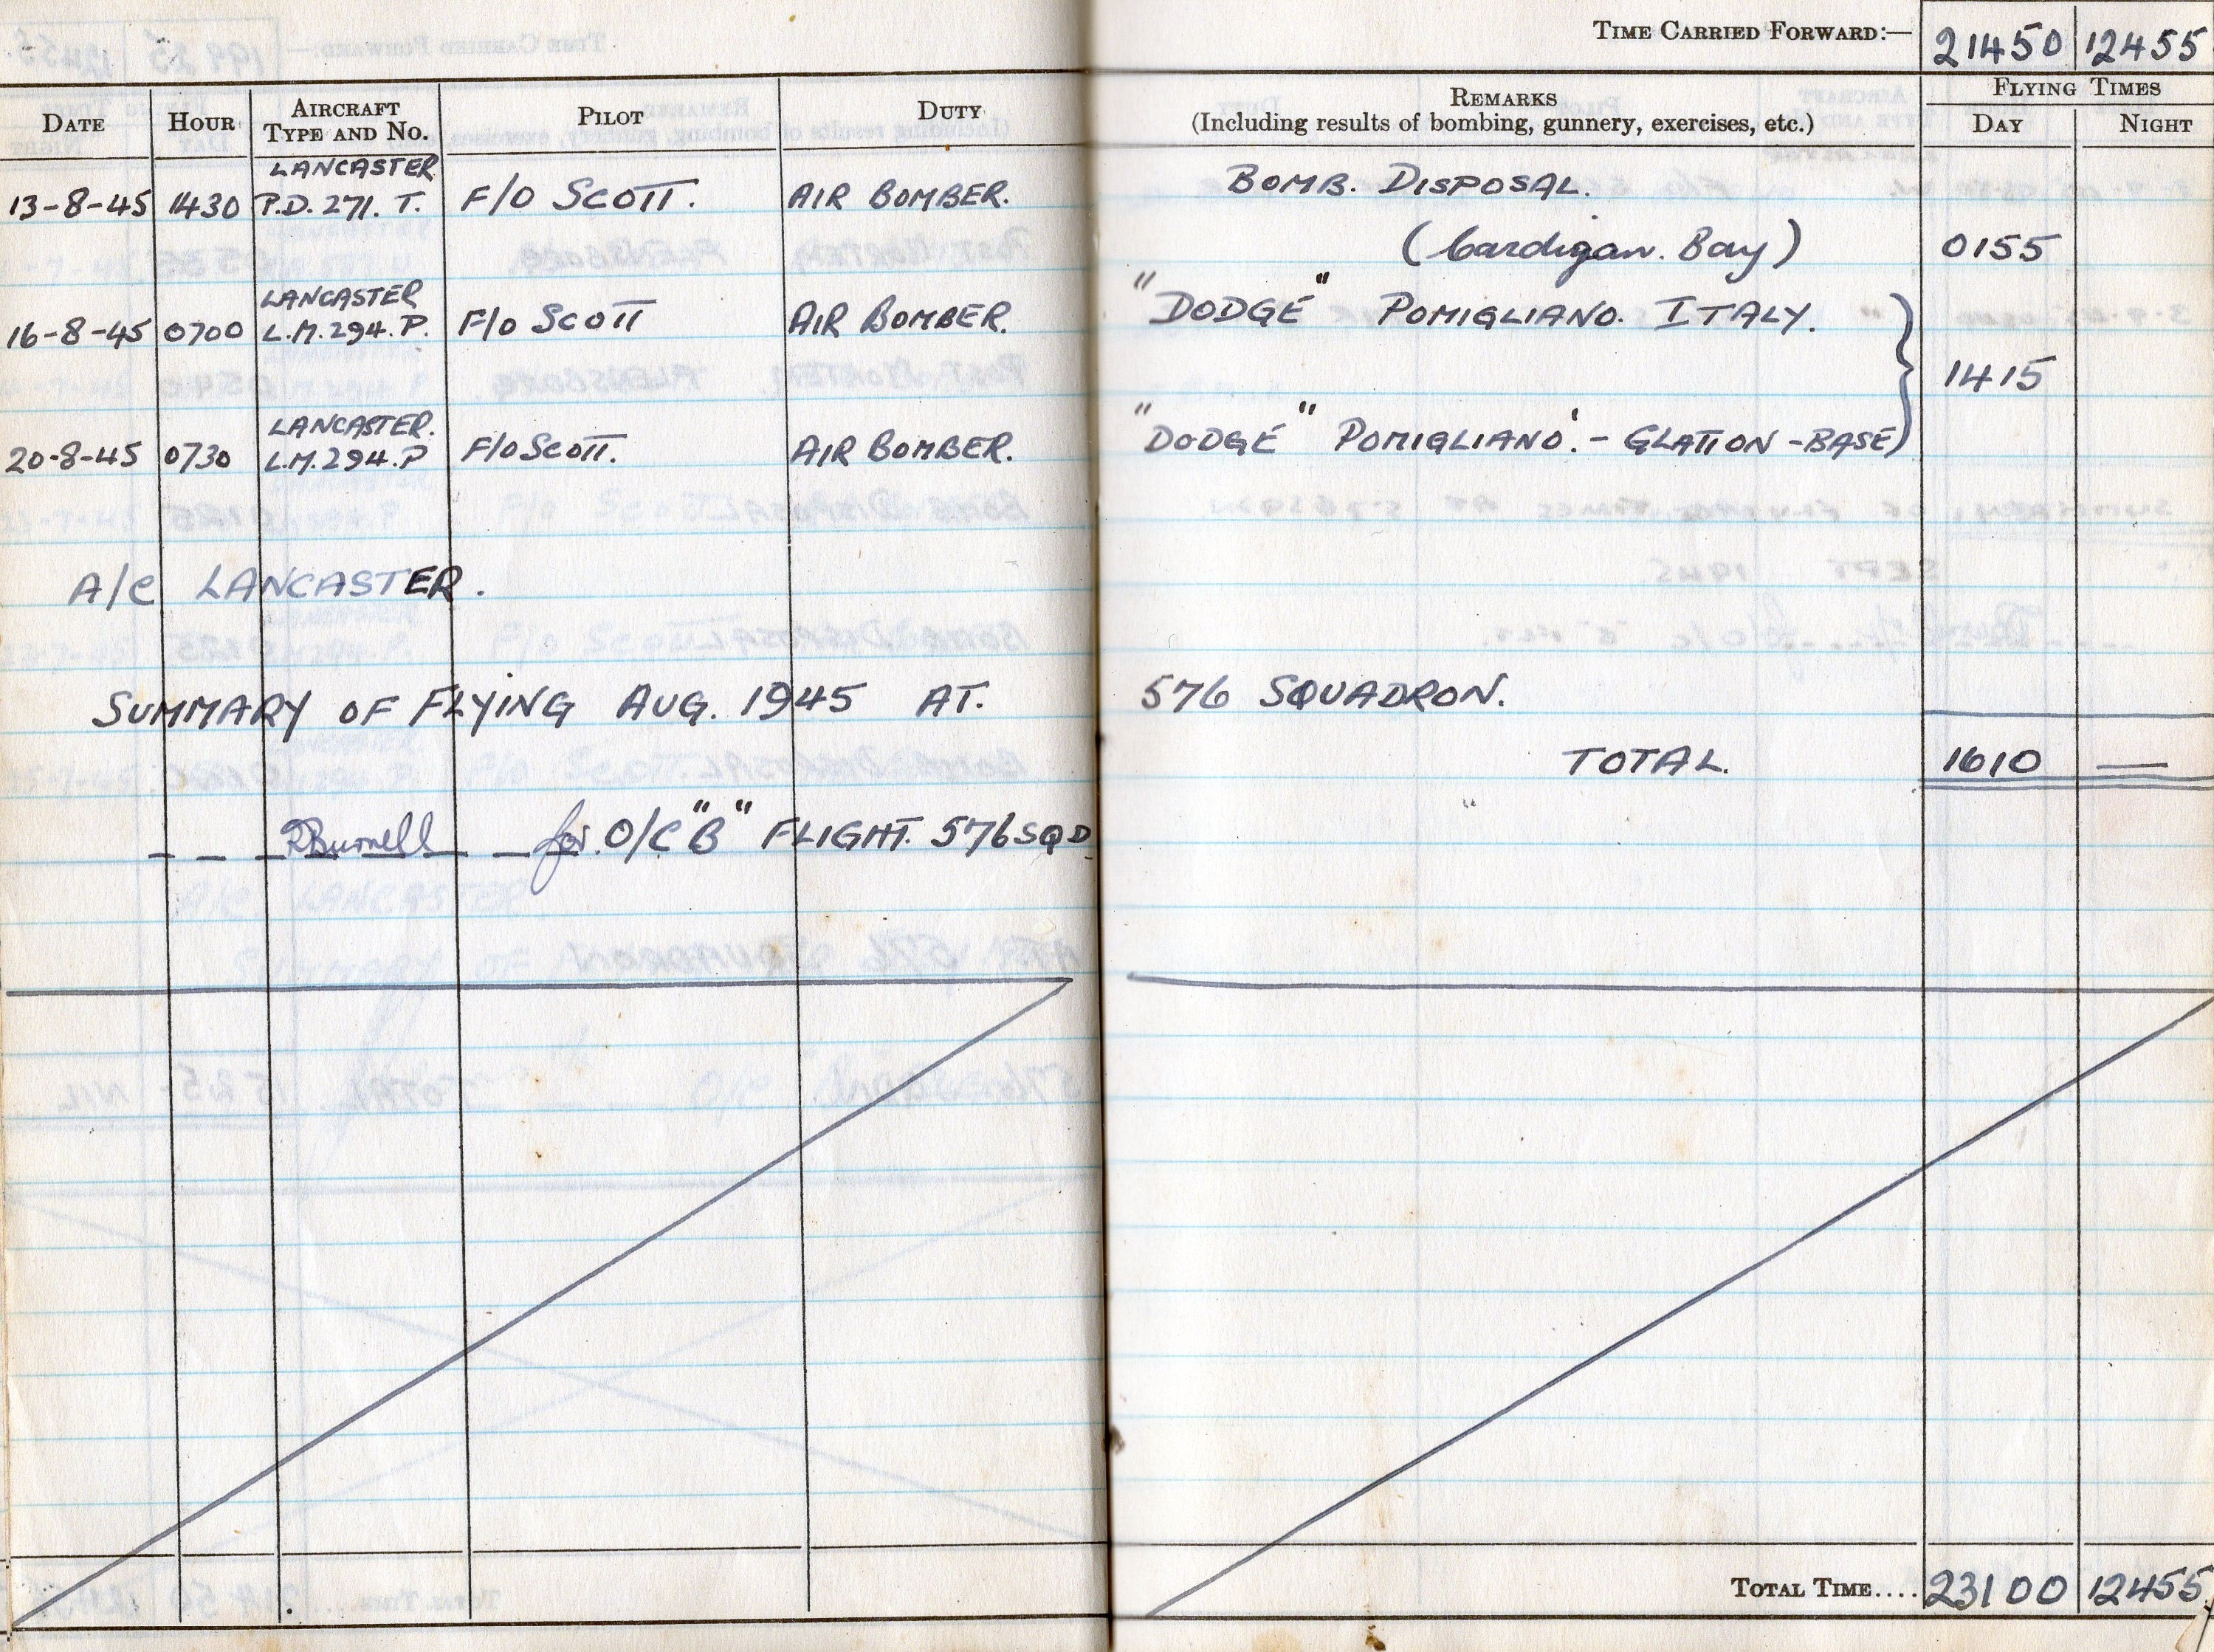 TIME CARRIED FORWARD:— 21450 12455
DATE HOUR AIRCRAFT TYPE AND No. PILOT DUTY REMARKS (Including results of bombing, gunnery, exercises, etc.) FLYING TIMES DAY NIGHT
LANCASTER
13-8-45 1430 P.D. 271. T. F/O SCOTT. AIR BOMBER. BOMB. DISPOSAL.
(Cardigan. Bay) 0155
LANCASTER
16-8-45 0700 L.M. 294. P. F/O SCOTT AIR BOMBER. "DODGE" POMIGLIANO. ITALY.
1415
LANCASTER.
20-8-45 0730 L.M. 294. P F/O SCOTT. AIR BOMBER. "DODGE" POMIGLIANO. - GLATTON - BASE
A/C LANCASTER.
SUMMARY OF FLYING AUG. 1945 AT. 576 SQUADRON.
TOTAL. 1610 —
RBurnell for O/C "B" FLIGHT. 576 SQD
TOTAL TIME.... 23100 12455